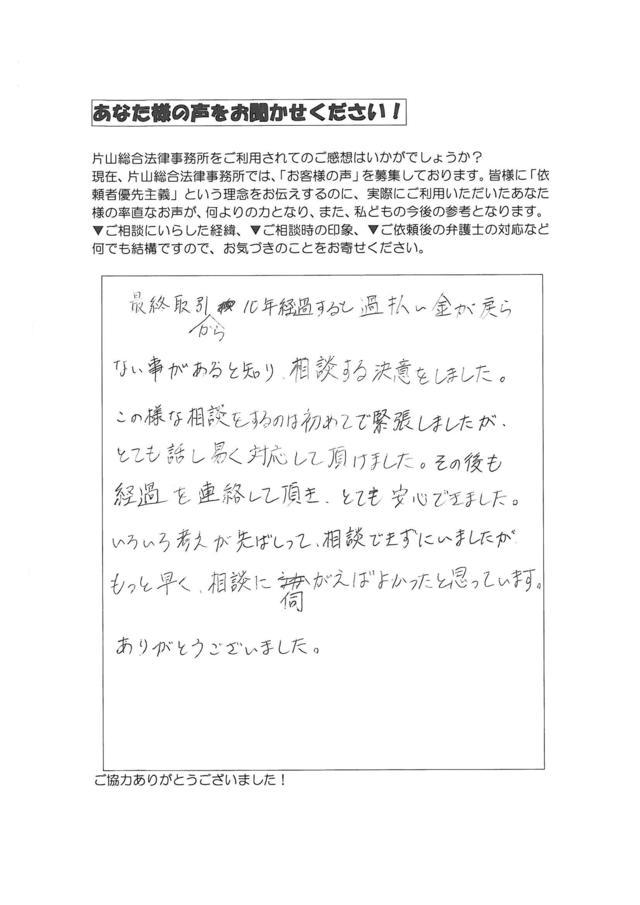 あなた様の声をお聞かせください！
片山総合法律事務所をご利用されてのご感想はいかがでしょうか？
現在、片山総合法律事務所では、「お客様の声」を募集しております。皆様に「依
頼者優先主義」という理念をお伝えするのに、実際にご利用いただいたあなた
様の率直なお声が、何よりの力となり、また、私どもの今後の参考となります。
▼ご相談にいらした経緯、▼ご相談時の印象、▼ご依頼後の弁護士の対応など
何でも結構ですので、お気づきのことをお寄せください。
最終取引から10年経過すると過払い金が戻ら
ない事があると知り、相談する決意をしました。
この様な相談をするのは初めてで緊張しましたが、
とても話し易く対応して頂けました。その後も
経過を連絡して頂き、とても安心できました。
いろいろ考えが先ばしって、相談できずにいましたが
もっと早く、相談に伺がえばよかったと思っています。
ありがとうございました。
ご協力ありがとうございました！